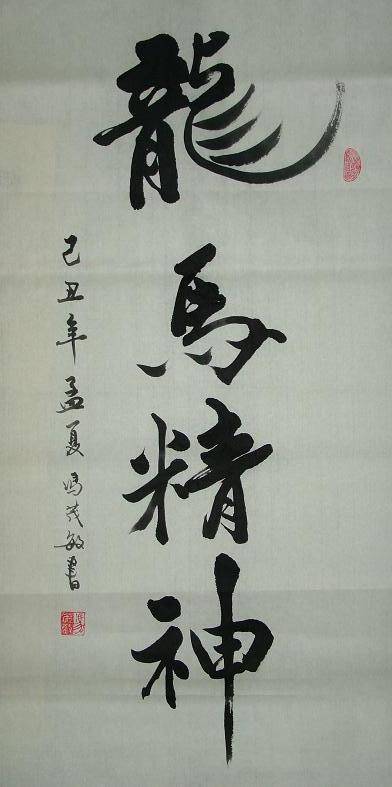 龍馬精神
己丑年孟夏馮茂敏書